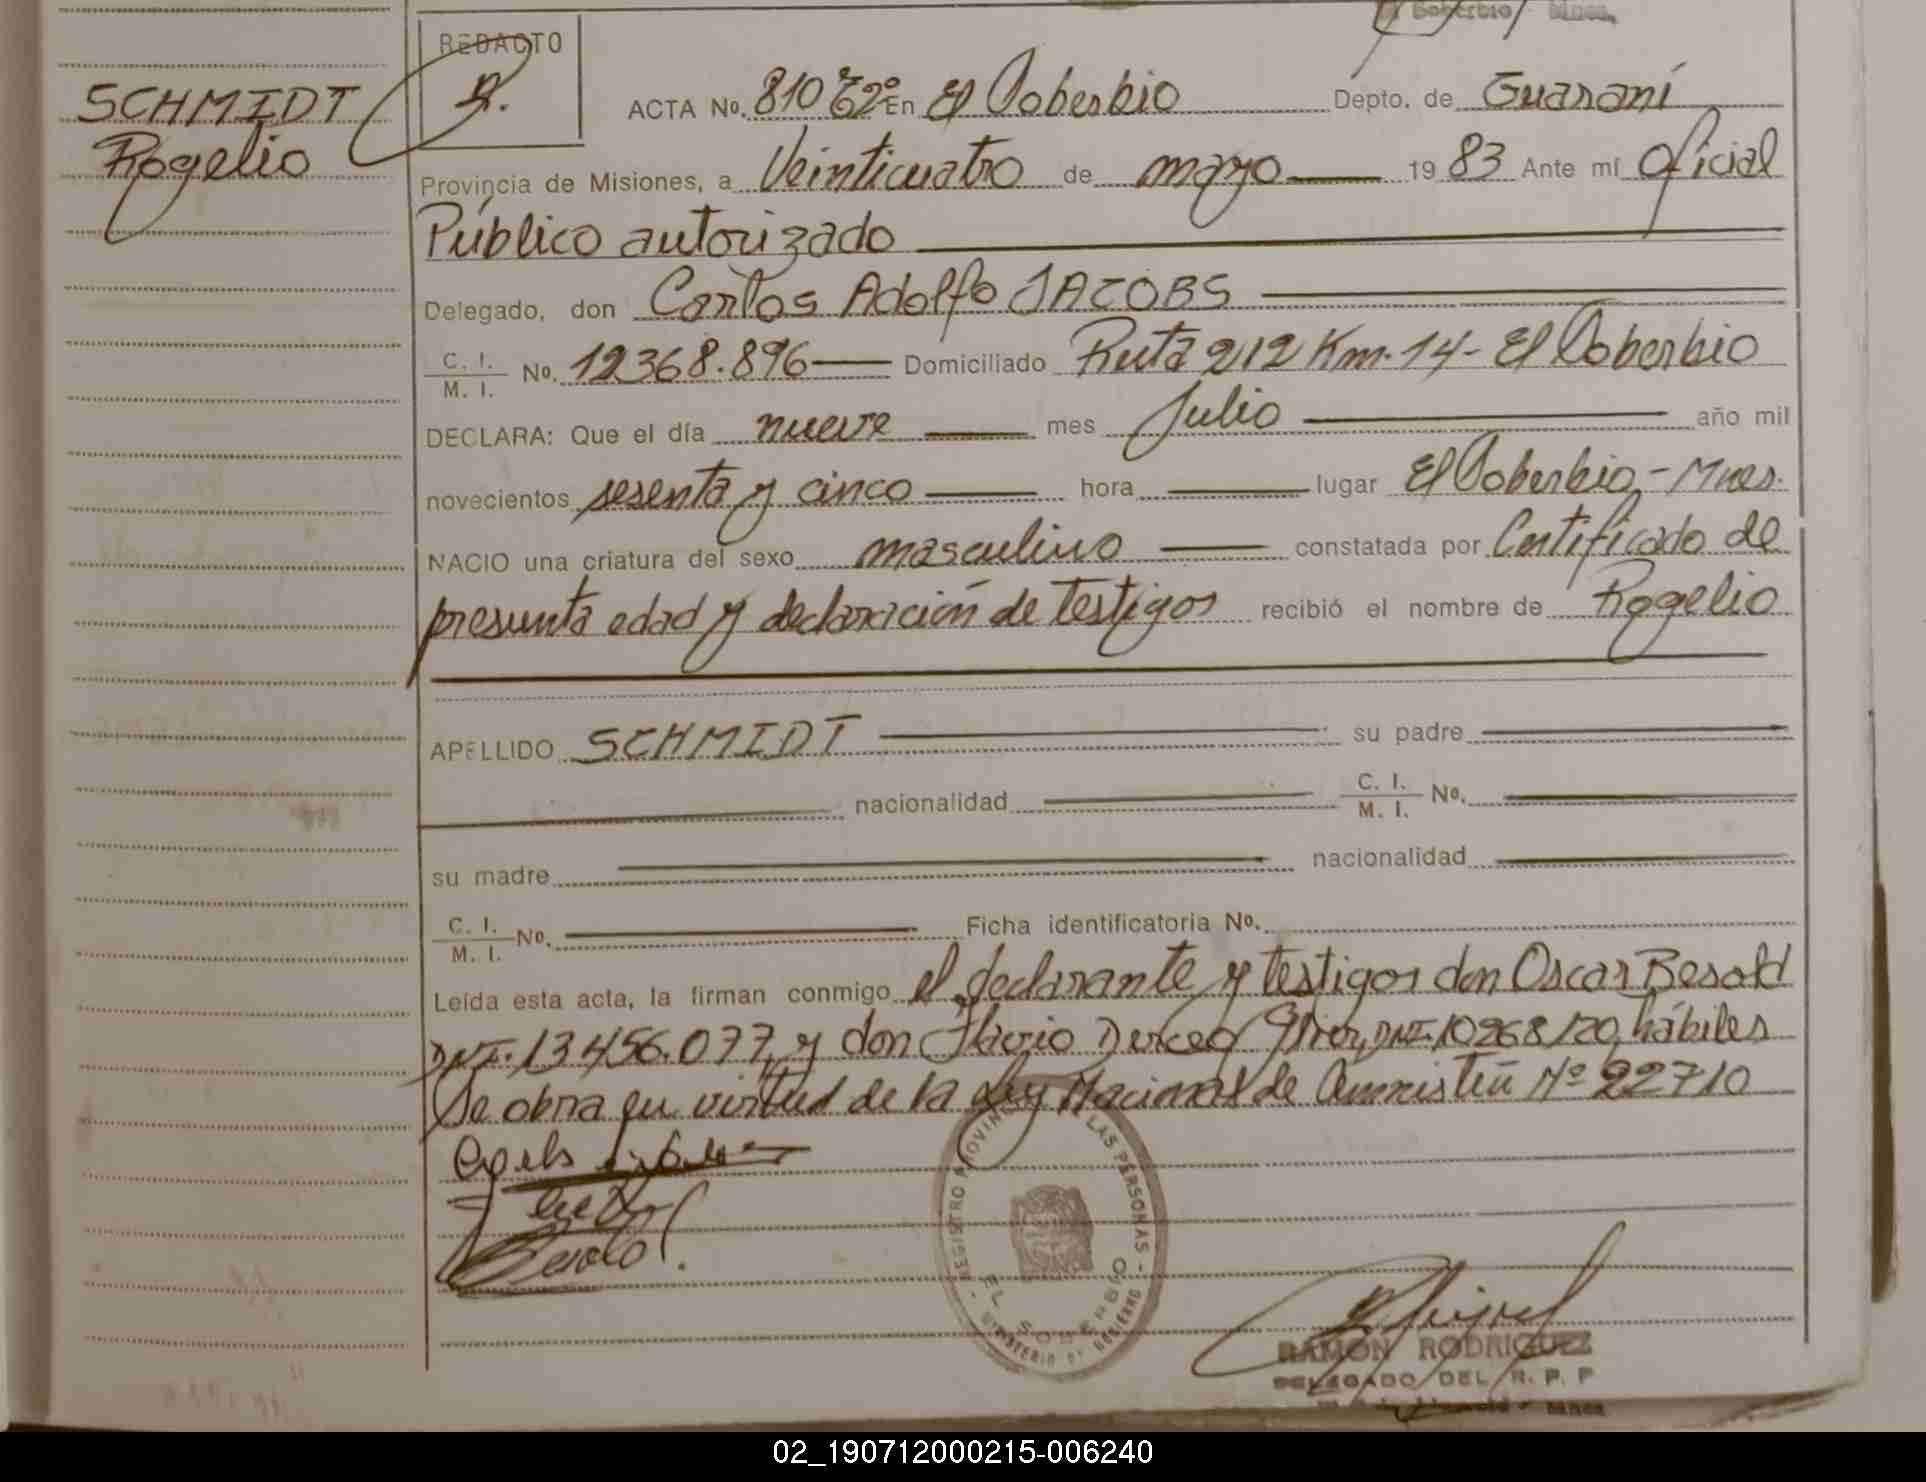 El Soberbio Mnes.
REDACTO
R.
SCHMIDT
Rogelio
ACTA No. 810 Tº2º En El Soberbio Depto. de Guaraní
Provincia de Misiones, a Veinticuatro de mayo 1983 Ante mí Oficial
Público autorizado
Delegado, don Carlos Adolfo JACOBS
C. I. / M. I. No. 12368.896 Domiciliado Ruta 212 Km. 14 - El Soberbio
DECLARA: Que el día nueve mes Julio año mil
novecientos sesenta y cinco hora lugar El Soberbio - Mnes.
NACIO una criatura del sexo masculino constatada por Certificado de
presunta edad y declaración de testigos recibió el nombre de Rogelio
APELLIDO SCHMIDT su padre
nacionalidad C. I. / M. I. No.
su madre nacionalidad
C. I. / M. I. No. Ficha identificatoria No.
Leída esta acta, la firman conmigo el declarante y testigos don Oscar Besold
DNI. 13456.077, y don Flavio DNI. 10268120, hábiles
Se obra en virtud de la Ley Nacional de Amnistía Nº 22710
REGISTRO PROVINCIAL LAS PERSONAS - MINISTERIO DE GOBIERNO -
EL SOBERBIO
RAMON RODRIGUEZ
DELEGADO DEL R. P. P
Mnes
02_190712000215-006240